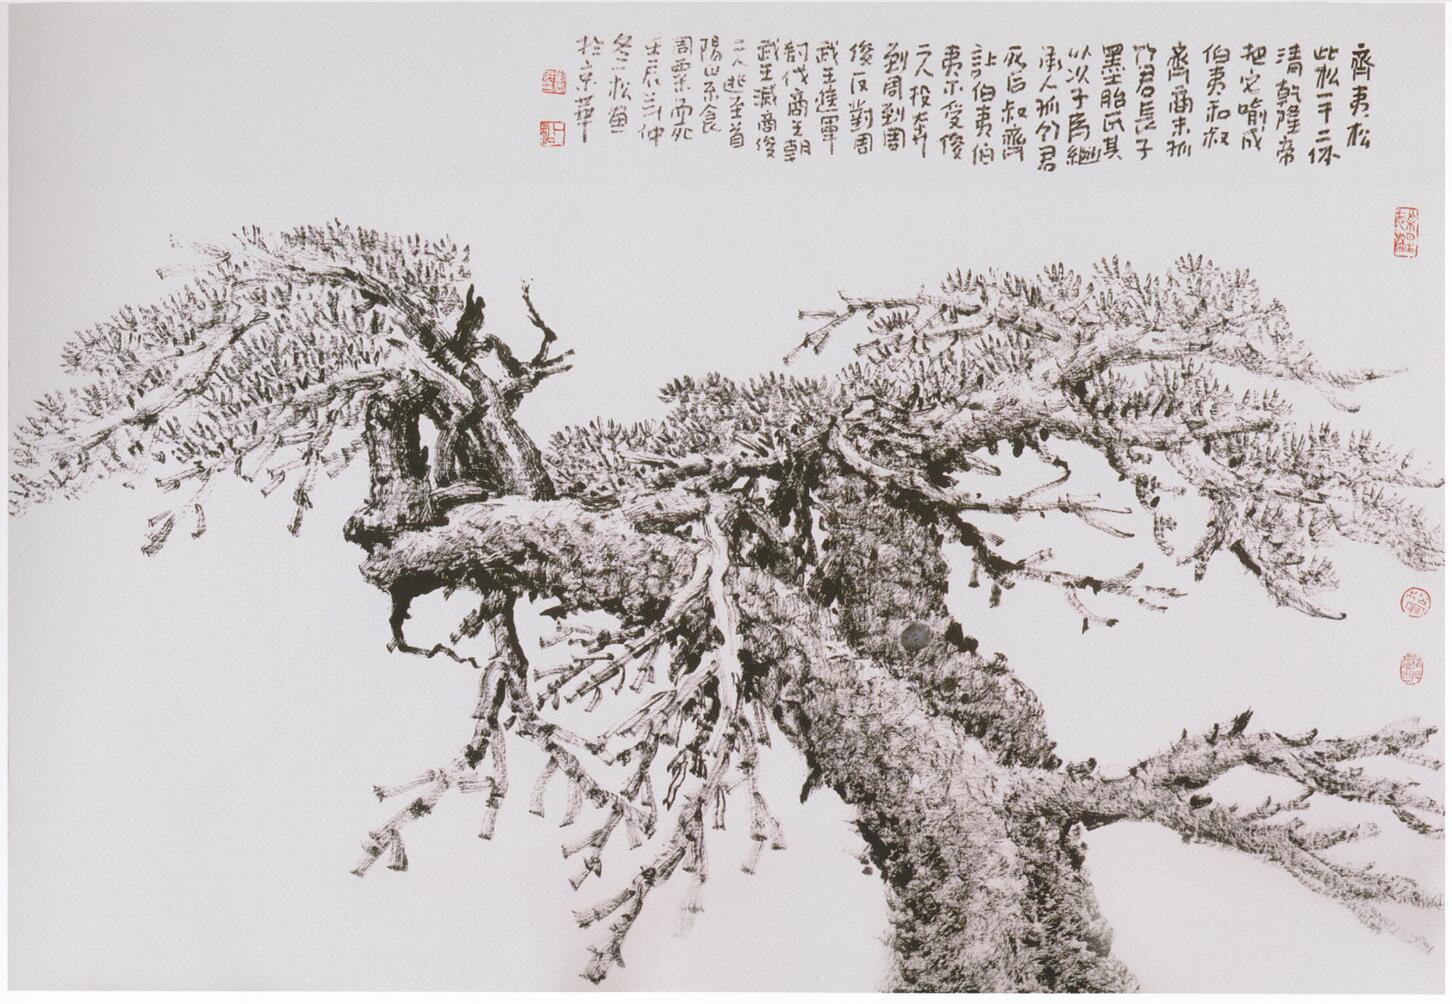 齊夷松
此松一干二体
清乾隆帝
把它喻成
伯夷和叔
齊商末孤
竹君長子
墨胎氏其
以次子為繼
承人孤竹君
死后叔齊
讓伯夷伯
夷不受後
二人投奔
到周到周
後反對周
武王進軍
討伐商王朝
武王滅商後
二人逃至首
陽山不食
周粟而死
壬辰仲
冬一松畫
於京華